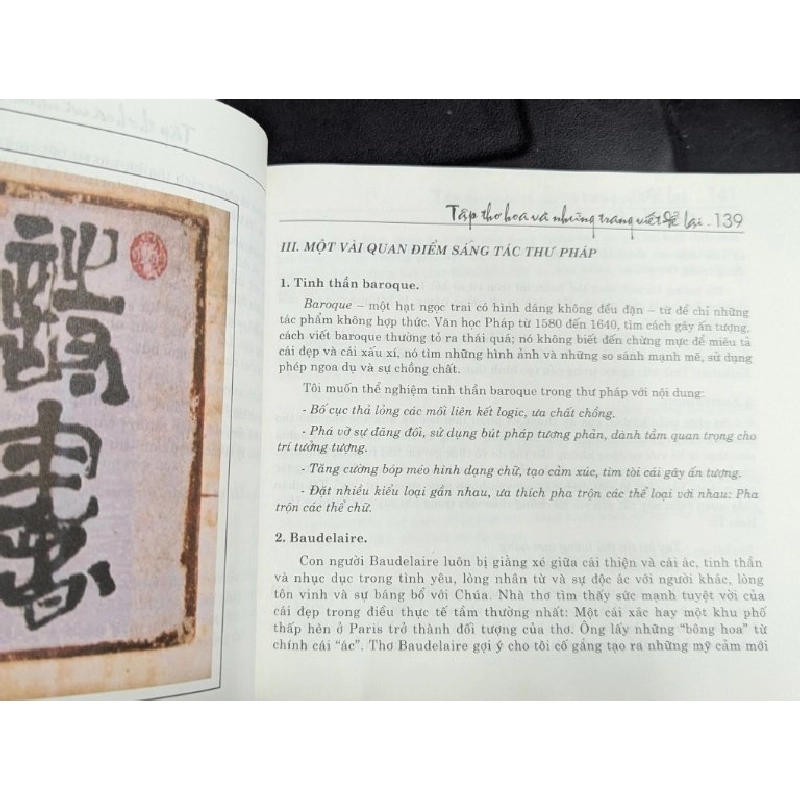 詩
書
Tập thơ hoa và những trang viết để lại. 139
III. MỘT VÀI QUAN ĐIỂM SÁNG TÁC THƯ PHÁP
1. Tinh thần baroque.
Baroque – một hạt ngọc trai có hình dáng không đều đặn – từ để chỉ những
tác phẩm không hợp thức. Văn học Pháp từ 1580 đến 1640, tìm cách gây ấn tượng,
cách viết baroque thường tỏ ra thái quá; nó không biết đến chừng mực để miêu tả
cái đẹp và cái xấu xí, nó tìm những hình ảnh và những so sánh mạnh mẽ, sử dụng
phép ngoa dụ và sự chồng chất.
Tôi muốn thể nghiệm tinh thần baroque trong thư pháp với nội dung:
- Bố cục thả lỏng các mối liên kết logic, ưa chất chồng.
- Phá vỡ sự đăng đối, sử dụng bút pháp tương phản, dành tầm quan trọng cho
trí tưởng tượng.
- Tăng cường bóp méo hình dạng chữ, tạo cảm xúc, tìm tòi cái gây ấn tượng.
- Đặt nhiều kiểu loại gần nhau, ưa thích pha trộn các thể loại với nhau: Pha
trộn các thể chữ.
2. Baudelaire.
Con người Baudelaire luôn bị giằng xé giữa cái thiện và cái ác, tinh thần
và nhục dục trong tình yêu, lòng nhân từ và sự độc ác với người khác, lòng
tôn vinh và sự báng bổ với Chúa. Nhà thơ tìm thấy sức mạnh tuyệt vời của
cái đẹp trong điều thực tế tầm thường nhất: Một cái xác hay một khu phố
thấp hèn ở Paris trở thành đối tượng của thơ. Ông lấy những “bông hoa” từ
chính cái “ác”. Thơ Baudelaire gợi ý cho tôi cố gắng tạo ra những mỹ cảm mới